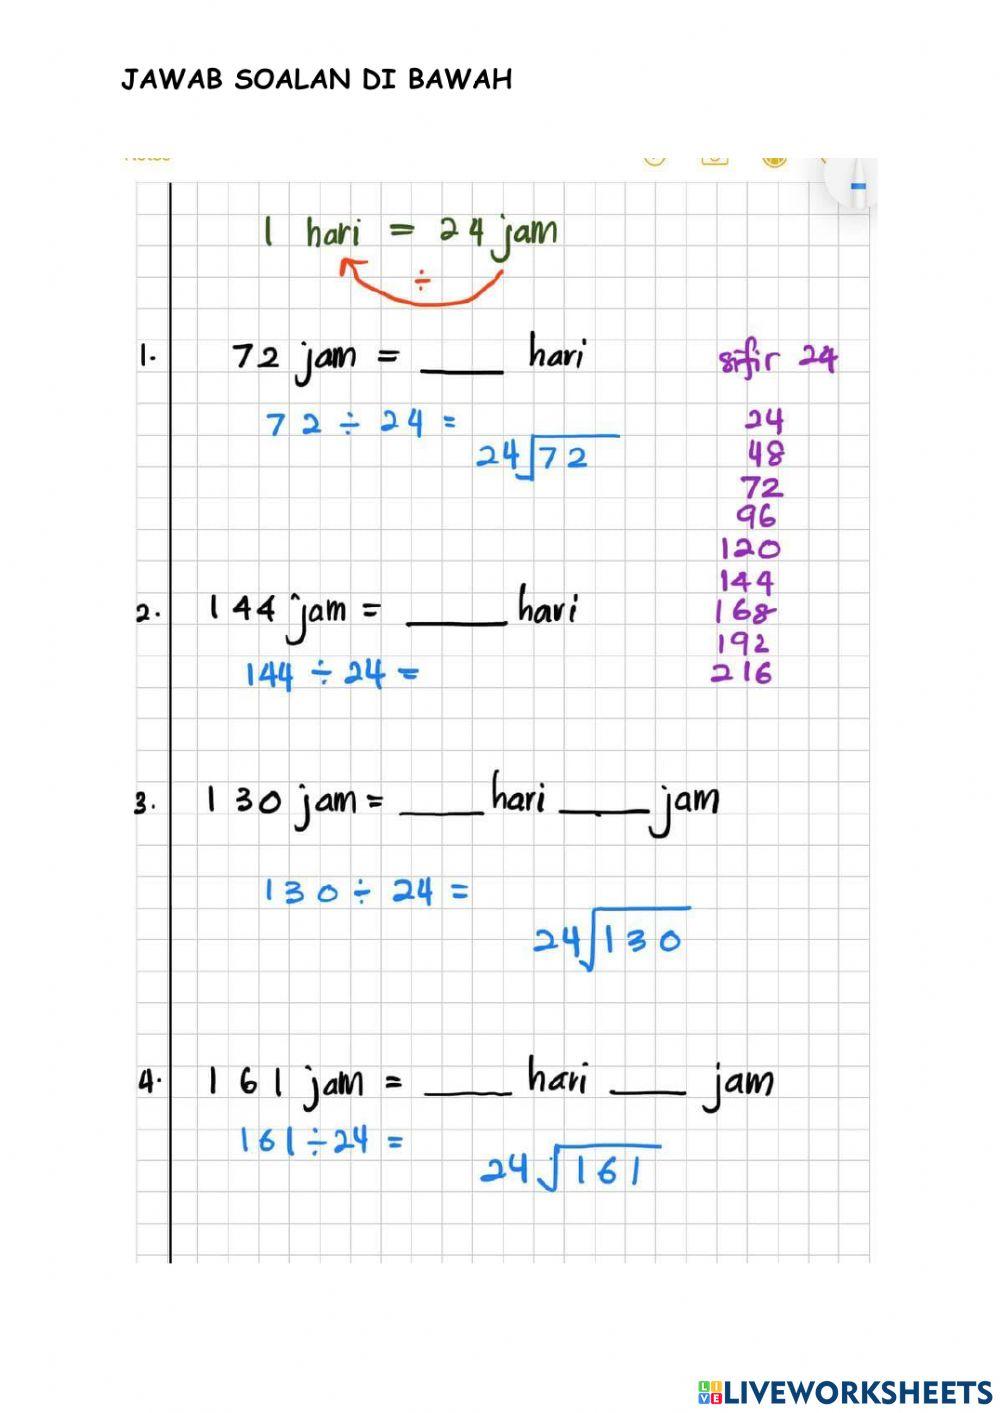 JAWAB SOALAN DI BAWAH
1 hari = 24 jam
÷
1. 72 jam = ____ hari
72 ÷ 24 =
24√72
sifir 24
24
48
72
96
120
144
168
192
216
2. 144 jam = ____ hari
144 ÷ 24 =
3. 130 jam = ____ hari ____ jam
130 ÷ 24 =
24√130
4. 161 jam = ____ hari ____ jam
161 ÷ 24 =
24√161
LIVE LIVEWORKSHEETS